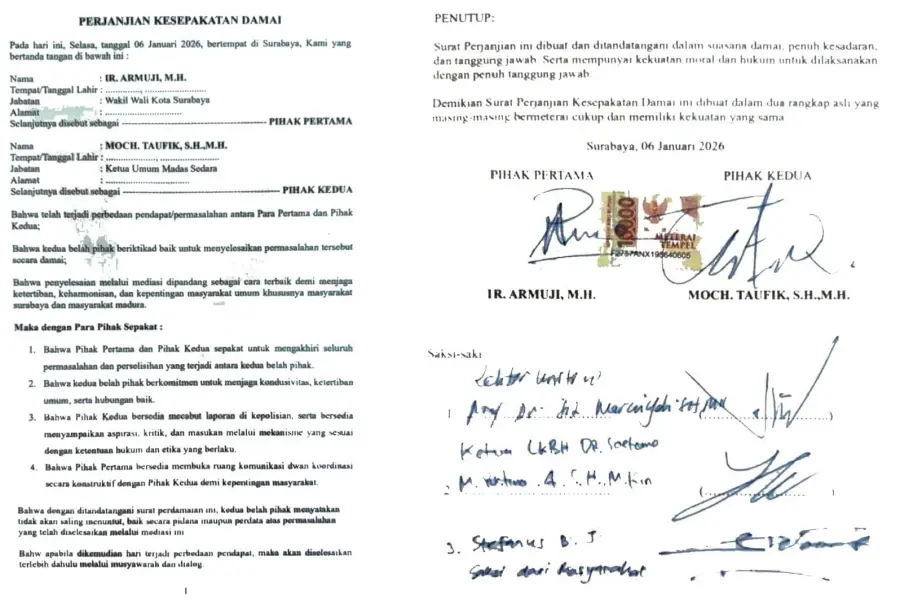 PERJANJIAN KESEPAKATAN DAMAI
Pada hari ini, Selasa, tanggal 06 Januari 2026, bertempat di Surabaya, Kami yang
bertanda tangan di bawah ini :
Nama : IR. ARMUJI, M.H.
Tempat/Tanggal Lahir : ......................, .........................
Jabatan : Wakil Wali Kota Surabaya
Alamat : ..............................
Selanjutnya disebut sebagai ---------------------------------------- PIHAK PERTAMA
Nama : MOCH. TAUFIK, S.H.,M.H.
Tempat/Tanggal Lahir : ......................, .........................
Jabatan : Ketua Umum Madas Sedara
Alamat : ..............................
Selanjutnya disebut sebagai ---------------------------------------- PIHAK KEDUA
Bahwa telah terjadi perbedaan pendapat/permasalahan antara Para Pertama dan Pihak
Kedua;
Bahwa kedua belah pihak beriktikad baik untuk menyelesaikan permasalahan tersebut
secara damai;
Bahwa penyelesaian melalui mediasi dipandang sebagai cara terbaik demi menjaga
ketertiban, keharmonisan, dan kepentingan masyarakat umum khususnya masyarakat
surabaya dan masyarakat madura.
Maka dengan Para Pihak Sepakat :
1. Bahwa Pihak Pertama dan Pihak Kedua sepakat untuk mengakhiri seluruh
permasalahan dan perselisihan yang terjadi antara kedua belah pihak.
2. Bahwa kedua belah pihak berkomitmen untuk menjaga kondusivitas, ketertiban
umum, serta hubungan baik.
3. Bahwa Pihak Kedua bersedia mecabut laporan di kepolisian, serta bersedia
menyampaikan aspirasi, kritik, dan masukan melalui mekanisme yang sesuai
dengan ketentuan hukum dan etika yang berlaku.
4. Bahwa Pihak Pertama bersedia membuka ruang komunikasi dwan koordinasi
secara konstruktif dengan Pihak Kedua demi kepentingan masyarakat.
Bahwa dengan ditandatangani surat perdamaian ini, kedua belah pihak menyatakan
tidak akan saling menuntut, baik secara pidana maupun perdata atas permasalahan
yang telah diselesaikan melalui mediasi ini
Bahw apabila dikemudian hari terjadi perbedaan pendapat, maka akan diselesaikan
terlebih dahulu melalui musyawarah dan dialog.
1
PENUTUP:
Surat Perjanjian ini dibuat dan ditandatangani dalam suasana damai, penuh kesadaran,
dan tanggung jawab. Serta mempunyai kekuatan moral dan hukum untuk dilaksanakan
dengan penuh tanggung jawab.
Demikian Surat Perjanjian Kesepakatan Damai ini dibuat dalam dua rangkap asli yang
masing-masing bermeterai cukup dan memiliki kekuatan yang sama
Surabaya, 06 Januari 2026
PIHAK PERTAMA PIHAK KEDUA
10000
METERAI
TEMPEL
IR. ARMUJI, M.H. MOCH. TAUFIK, S.H.,M.H.
Saksi-saksi
1 Prof Dr. Siti Marwiyah
Ketua LKBH DR. Soetomo
2 M.
3. Stefanus B. J
Saksi dari Masyarakat